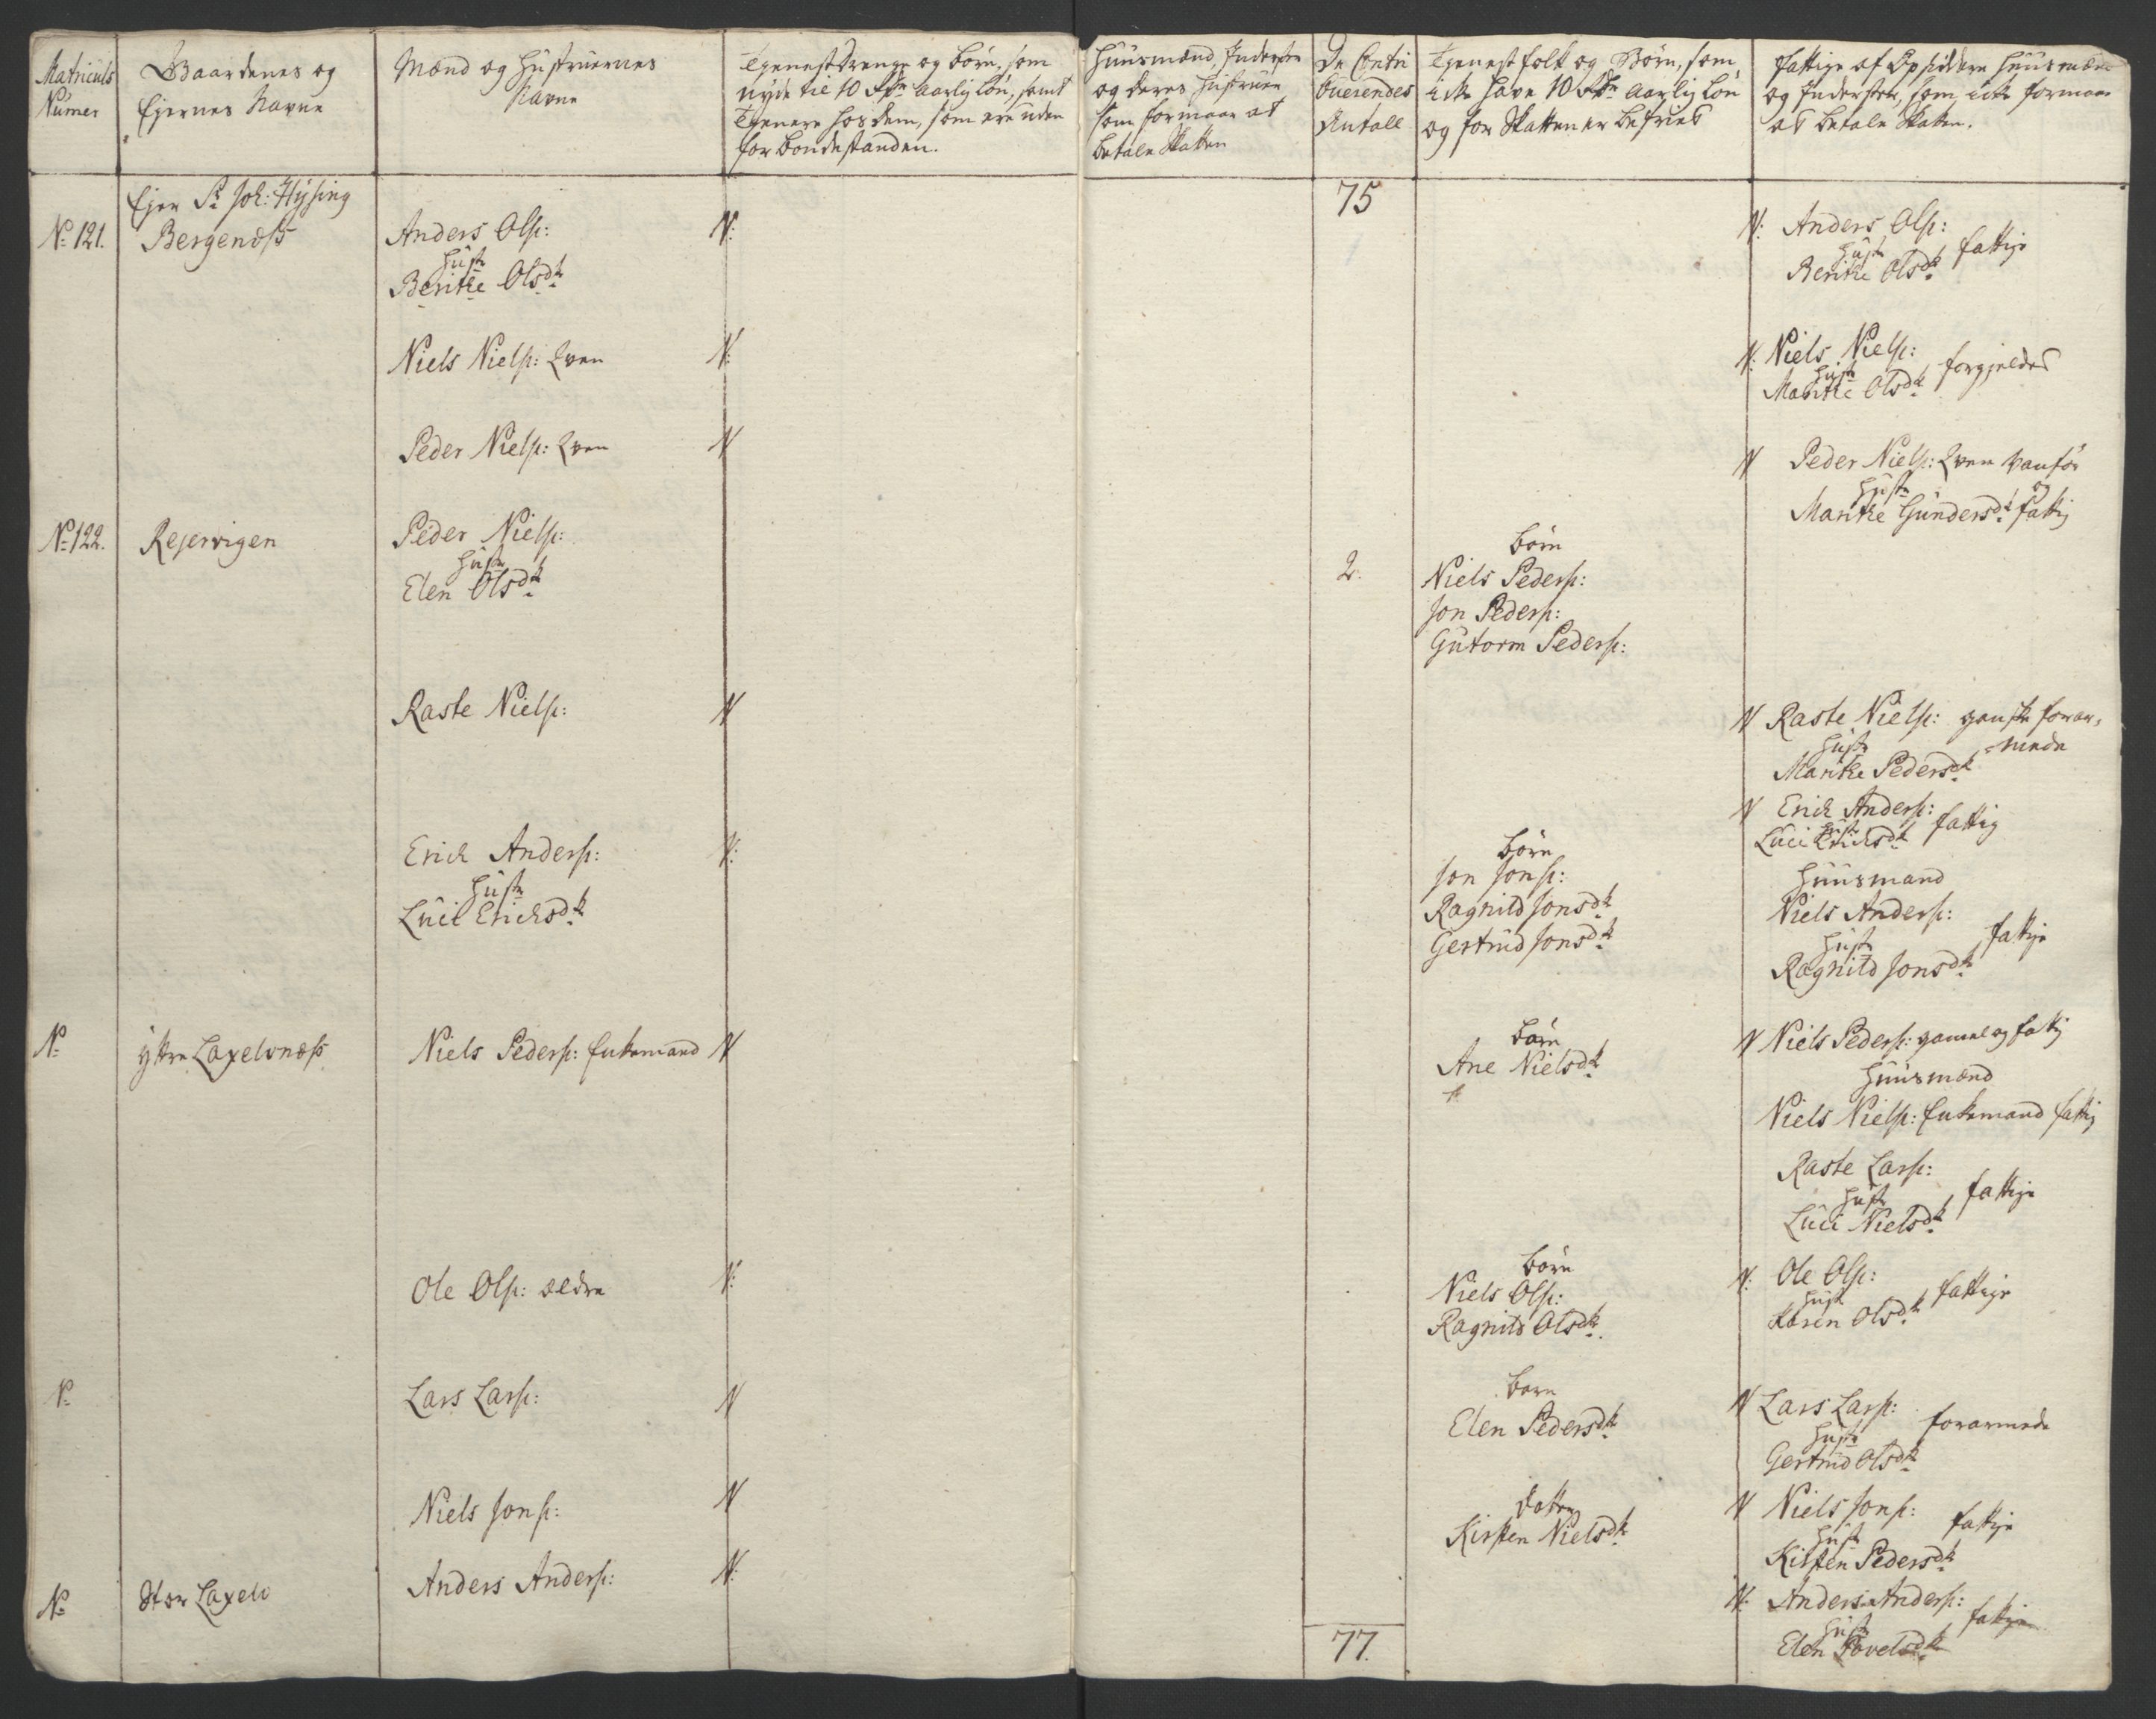 Matriculs
Numer
Gaardenes og
Ejernes Navne
Mænd og Hustruernes
Navne
Tjenestdrenge og Børn, som
nyde til 10 Rdr aarlig Løn, samt
Tjenere hos dem, som ere uden
for bondestanden.
Huusmænd, Inderster
og deres Hustruer
som formaar at
betale Skatten
De Contri
buerendes
Antall
Tjenestfolk og Børn, som
icke have 10 Rdr aarlig Løn
og for Skatten er befried
Fattige af Opsiddere Huusmænd
og Inderster, som icke formaar
at betale Skatten.
75
Ejer Sr Joh: Hysing
No 121.
Bergenæss
Anders Ols:
Hustr
Berithe Olsdr
N:
N: Anders Ols:
Hustr
Berithe Olsdr fattige
Niels Niels: Qven
N:
N: Niels Niels:
Hustr
Marithe Olsdr forgjelded
Peder Niels: Qven
N
N Peder Niels: Qven vanfør
Hustr og
Marithe Gundersdr fattig
No 122.
Rejervigen
Peder Niels:
Hustr
Elen Olsdr
2.
Børn
Niels Peders:
Jon Peders:
Gutorm Peders:
Raste Niels:
N
N Raste Niels: ganske forar-
Hustr -mede
Marithe Pedersdr
Erich Anders:
Hustr
Lucie Erichsdr
N:
Børn
Jon Jons:
Ragnild Jonsdr
Gertrud Jonsdr
N Erich Anders:
Hustr
Luci Erichsdr fattig
Huusmand
Niels Anders:
Hustr fattige
Ragnild Jonsdr
No
Yttre Laxelvnæss
Niels Peders: Enkemand
N
Børn
Ane Nielsdr
N Niels Peders: gamel og fattig
Huusmænd
Niels Niels: Enkemand fattig
Raste Lars:
Hustr fattige
Luci Nielsdr
Ole Ols: ældre
N:
Børn
Niels Ols:
Ragnild Olsdr.
N: Ole Ols:
Hustr fattige
Karen Olsdr
No
Lars Lars:
N
Børn
Elen Pedersdr
N Lars Lars:
Hustr forarmede
Gertrud Olsdr
Niels Jons:
N
Datter
Kirsten Nielsdr
N Niels Jons:
Hustr fattige
Kirsten Pedersdr
No
Stor Laxelv
Anders Anders:
N:
N: Anders Anders:
Hustr fattige
Elen Povelsdr
77.